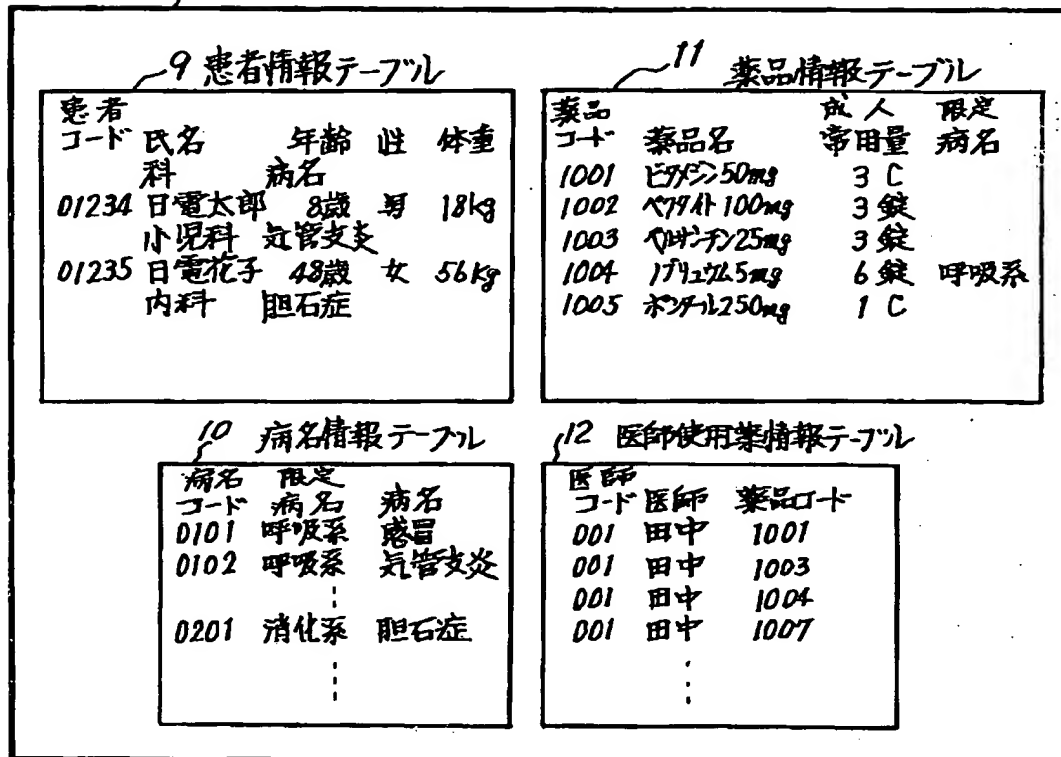 9 患者情報テーブル
患者
コード 氏名 年齢 性 体重
科 病名
01234 日電太郎 8歳 男 18kg
小児科 気管支炎
01235 日電花子 48歳 女 56kg
内科 胆石症
11 薬品情報テーブル
薬品 成人 限定
コード 薬品名 常用量 病名
1001 ビタメジン50mg 3 C
1002 100mg 3錠
1003 ペルサンチン25mg 3錠
1004 5mg 6錠 呼吸系
1005 ポンタール250mg 1 C
10 病名情報テーブル
病名 限定
コード 病名 病名
0101 呼吸系 感冒
0102 呼吸系 気管支炎
0201 消化系 胆石症
12 医師使用薬情報テーブル
医師
コード 医師 薬品コード
001 田中 1001
001 田中 1003
001 田中 1004
001 田中 1007